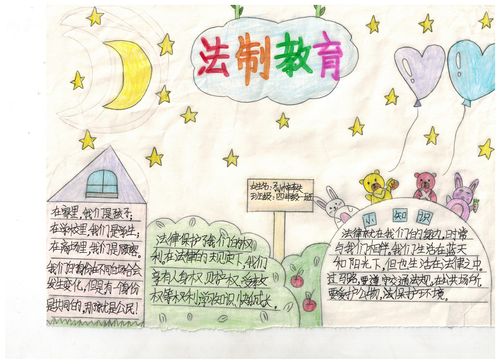 法制教育
姓名:
班级:四年级一班
小知识
在家里,我们是孩子;
在学校里,我们是学生;
在商场里,我们是顾客。
我们的身份在不同的场合会
发生变化,但是有一个身份
是共同的,那就是公民!
法律保护我们的权
利在法律的规定下,我们
享有人身权、财产权、受教
权等权利学习知识,快乐成长。
法律就在我们的身边,时常
与我们相伴。我们生活在蓝天
和阳光下,但也生活在法律之中。
过马路,要遵守交通法规,在公共场所,
要爱护公物,法保护环境。